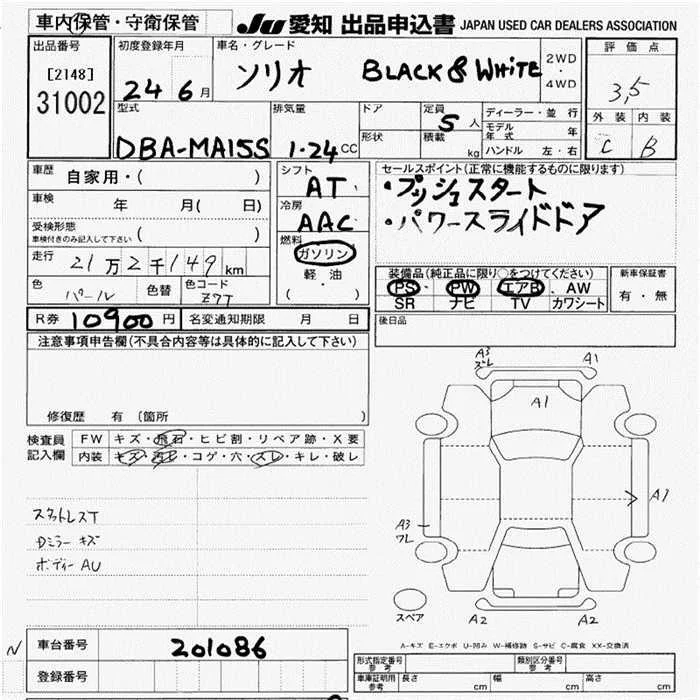 車内保管・守衛保管
JU 愛知 出品申込書 JAPAN USED CAR DEALERS ASSOCIATION
出品番号
[2148]
31002
初度登録年月
24 6 月
車名・グレード
ソリオ BLACK & WHITE
2WD
・
4WD
評価点
3,5
外装 内装
C B
型式
DBA-MA15S
排気量
1.24 CC
ドア
形状
定員
5 人
積載
kg
ディーラー・並行
モデル年式 年
ハンドル 左・右
車歴 自家用・( )
車検 年 月( 日)
受検形態
車検付きのみ記入して下さい ( )
走行 21万2千149km
色 パール
色替
色コード Z7T
シフト
AT
冷房
AAC
燃料
ガソリン
軽・油
( ・ )
セールスポイント(正常に機能するものに限ります)
・プッシュスタート
・パワースライドドア
装備品(純正品に限り○をつけてください)
PS、 PW エアB、AW
SR ナビ TV カワシート
新車保証書
有・無
後日品
R券 10900円
名変通知期限 月 日
注意事項申告欄(不具合内容等は具体的に記入して下さい)
修復歴 有 (箇所 )
検査員
記入欄
FW キズ・飛石・ヒビ割・リペア跡・X要
内装 キズ・汚レ・コゲ・穴・スレ・キレ・破レ
スタットレスT
Dミラー キズ
ボディー AU
A3
ズレ
A1
A1
A1
A3
ワレ
スペア
A2
A2
A-キズ E-エクボ U-凹み W-補修跡 S-サビ C-腐食 XX-交換済
N
車台番号 201086
登録番号
形式指定番号
参考
類別区分番号
参考
車庫証明用
参考
長さ cm 幅 cm 高さ cm